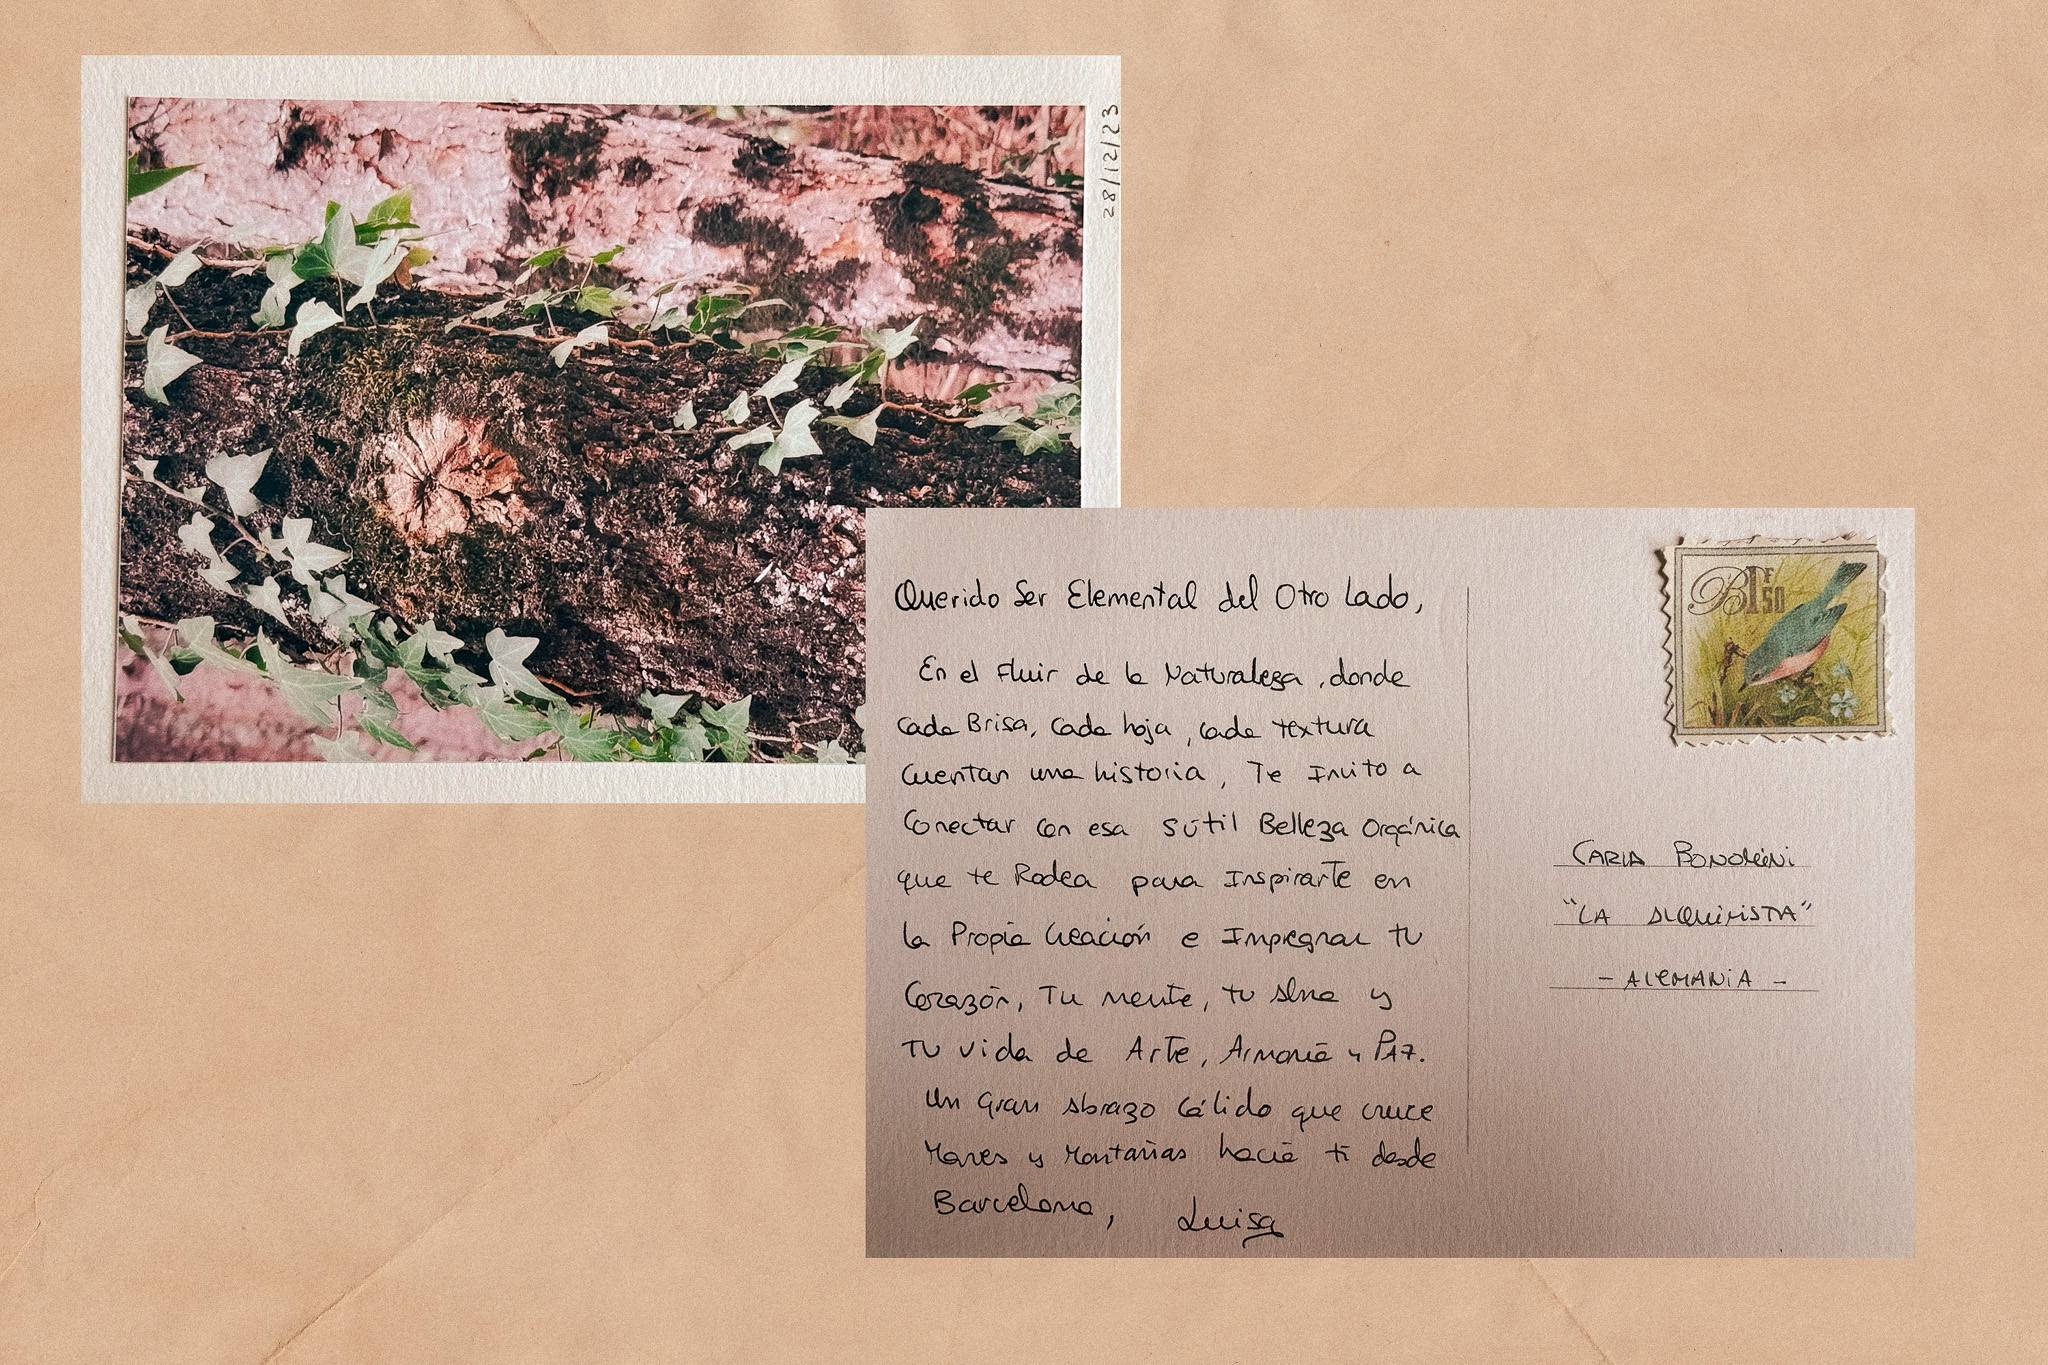 28/12/23
Querido Ser Elemental del Otro Lado,
En el Fluir de la Naturaleza, donde
cada Brisa, cada hoja, cada textura
cuentan una historia, Te Invito a
Conectar con esa sútil Belleza Orgánica
que te Rodea para Inspirarte en
la Propia Creación e Impregnar tu
Corazón, Tu mente, tu alma y
Tu vida de Arte, Armonía y PAZ.
Un Gran abrazo Cálido que cruce
Mares y Montañas hacia ti desde
Barcelona, Luisa
BTF
50
CARLA BONOMINI
"LA ALQUIMISTA"
- ALEMANIA -